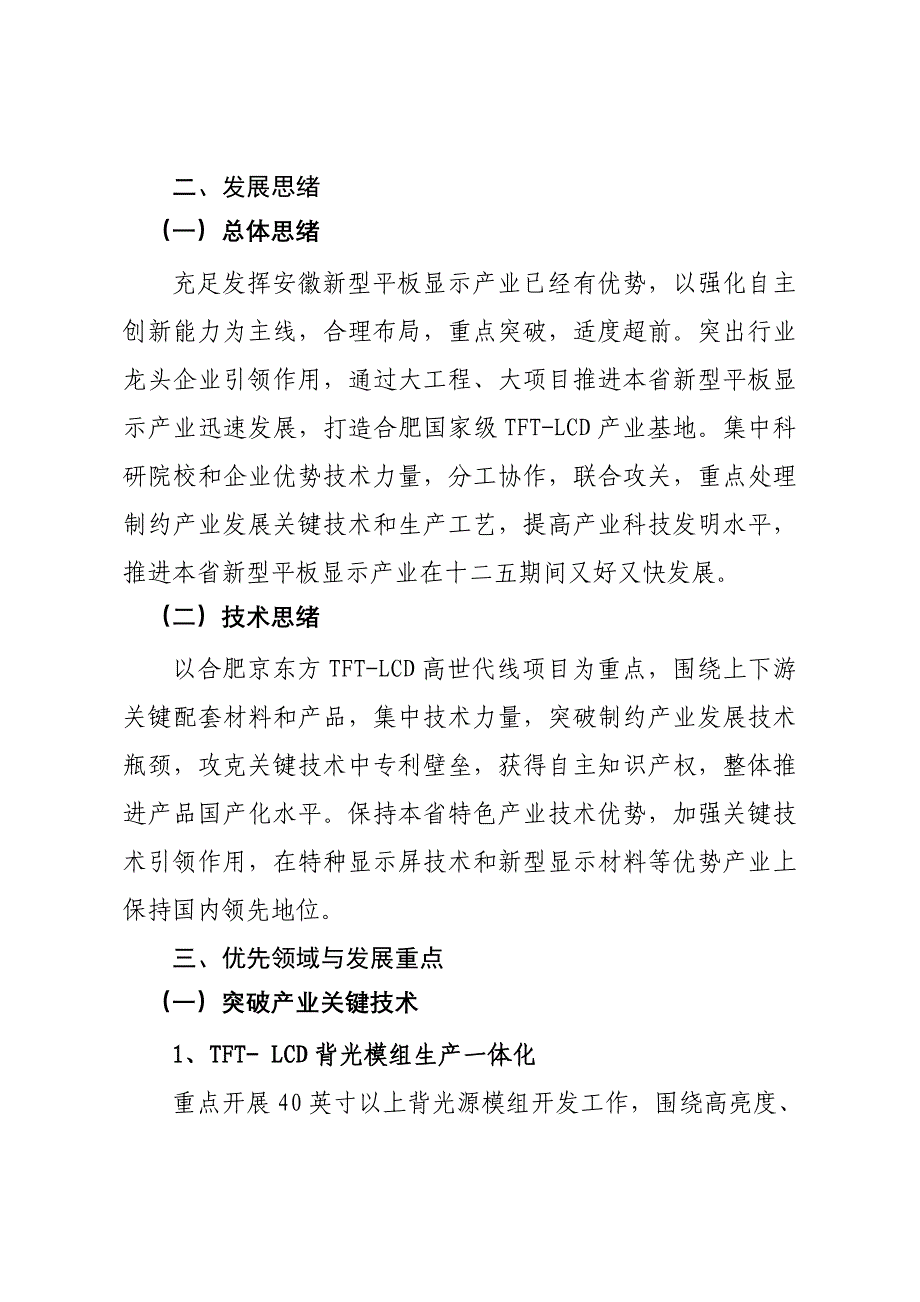 二、发展思绪
（一）总体思绪
充足发挥安徽新型平板显示产业已经有优势，以强化自主
创新能力为主线，合理布局，重点突破，适度超前。突出行业
龙头企业引领作用，通过大工程、大项目推进本省新型平板显
示产业迅速发展，打造合肥国家级 TFT-LCD 产业基地。集中科
研院校和企业优势技术力量，分工协作，联合攻关，重点处理
制约产业发展关键技术和生产工艺，提高产业科技发明水平，
推进本省新型平板显示产业在十二五期间又好又快发展。
（二）技术思绪
以合肥京东方 TFT-LCD 高世代线项目为重点，围绕上下游
关键配套材料和产品，集中技术力量，突破制约产业发展技术
瓶颈，攻克关键技术中专利壁垒，获得自主知识产权，整体推
进产品国产化水平。保持本省特色产业技术优势，加强关键技
术引领作用，在特种显示屏技术和新型显示材料等优势产业上
保持国内领先地位。
三、优先领域与发展重点
（一）突破产业关键技术
1、TFT- LCD 背光模组生产一体化
重点开展 40 英寸以上背光源模组开发工作，围绕高亮度、